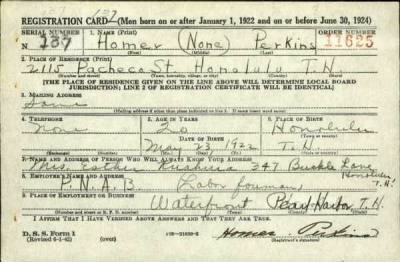 REGISTRATION CARD—(Men born on or after January 1, 1922 and on or before June 30, 1924)
SERIAL NUMBER 1. NAME (Print) ORDER NUMBER
N 137 Homer (None) Perkins 11625
(First) (Middle) (Last)
2. PLACE OF RESIDENCE (Print)
2115 Pacheco St Honolulu T.H.
(Number and street) (Town, township, village, or city) (County) (State)
[THE PLACE OF RESIDENCE GIVEN ON THE LINE ABOVE WILL DETERMINE LOCAL BOARD
JURISDICTION; LINE 2 OF REGISTRATION CERTIFICATE WILL BE IDENTICAL]
3. MAILING ADDRESS
Same
[Mailing address if other than place indicated on line 2. If same insert word same]
4. TELEPHONE 5. AGE IN YEARS 6. PLACE OF BIRTH
None 20 Honolulu
DATE OF BIRTH
May 23, 1922 T.H.
7. NAME AND ADDRESS OF PERSON WHO WILL ALWAYS KNOW YOUR ADDRESS
Mrs. Esther 347 Buckle Lane
Honolulu T.H.
8. EMPLOYER'S NAME AND ADDRESS
P.N.A.B. Labor foreman
9. PLACE OF EMPLOYMENT OR BUSINESS
Waterfront Pearl Harbor T.H.
(Number and street or R. F. D. number) (Town) (County) (State)
I AFFIRM THAT I HAVE VERIFIED ABOVE ANSWERS AND THAT THEY ARE TRUE.
D. S. S. Form 1
(Revised 6-1-42) (over) Homer Perkins
(Registrant's signature)